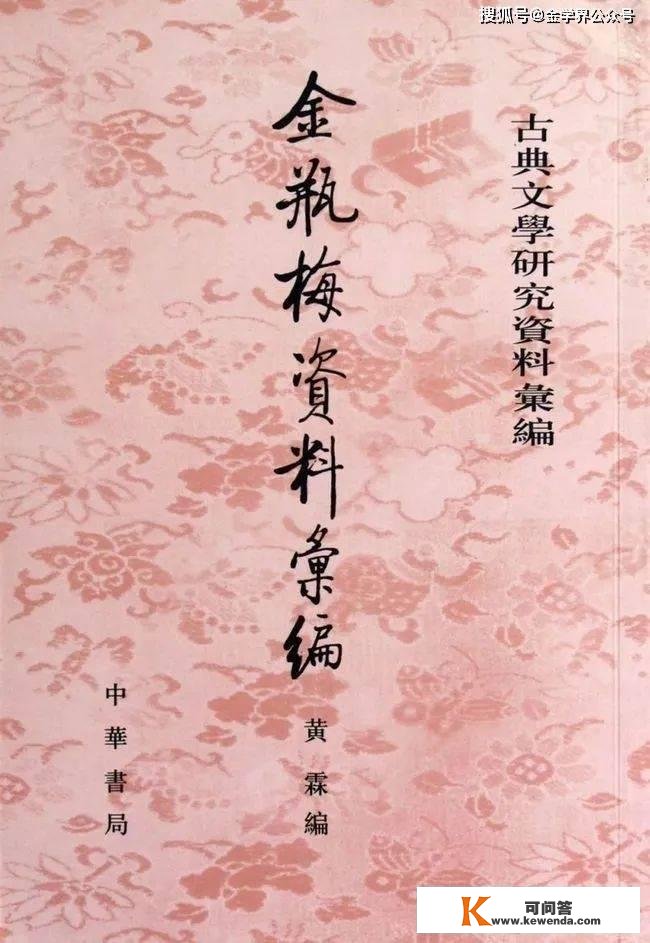 搜狐号@金学界公众号
古典文學研究資料彙編
金瓶梅資料彙編
黄霖编
中華書局
K 可问答
www.kewenda.com